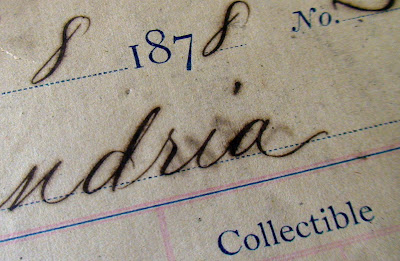 8 1878 No.
ndria
Collectible